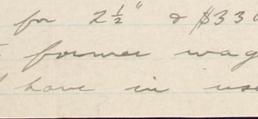 for 2½" & $33
former wag
have in us